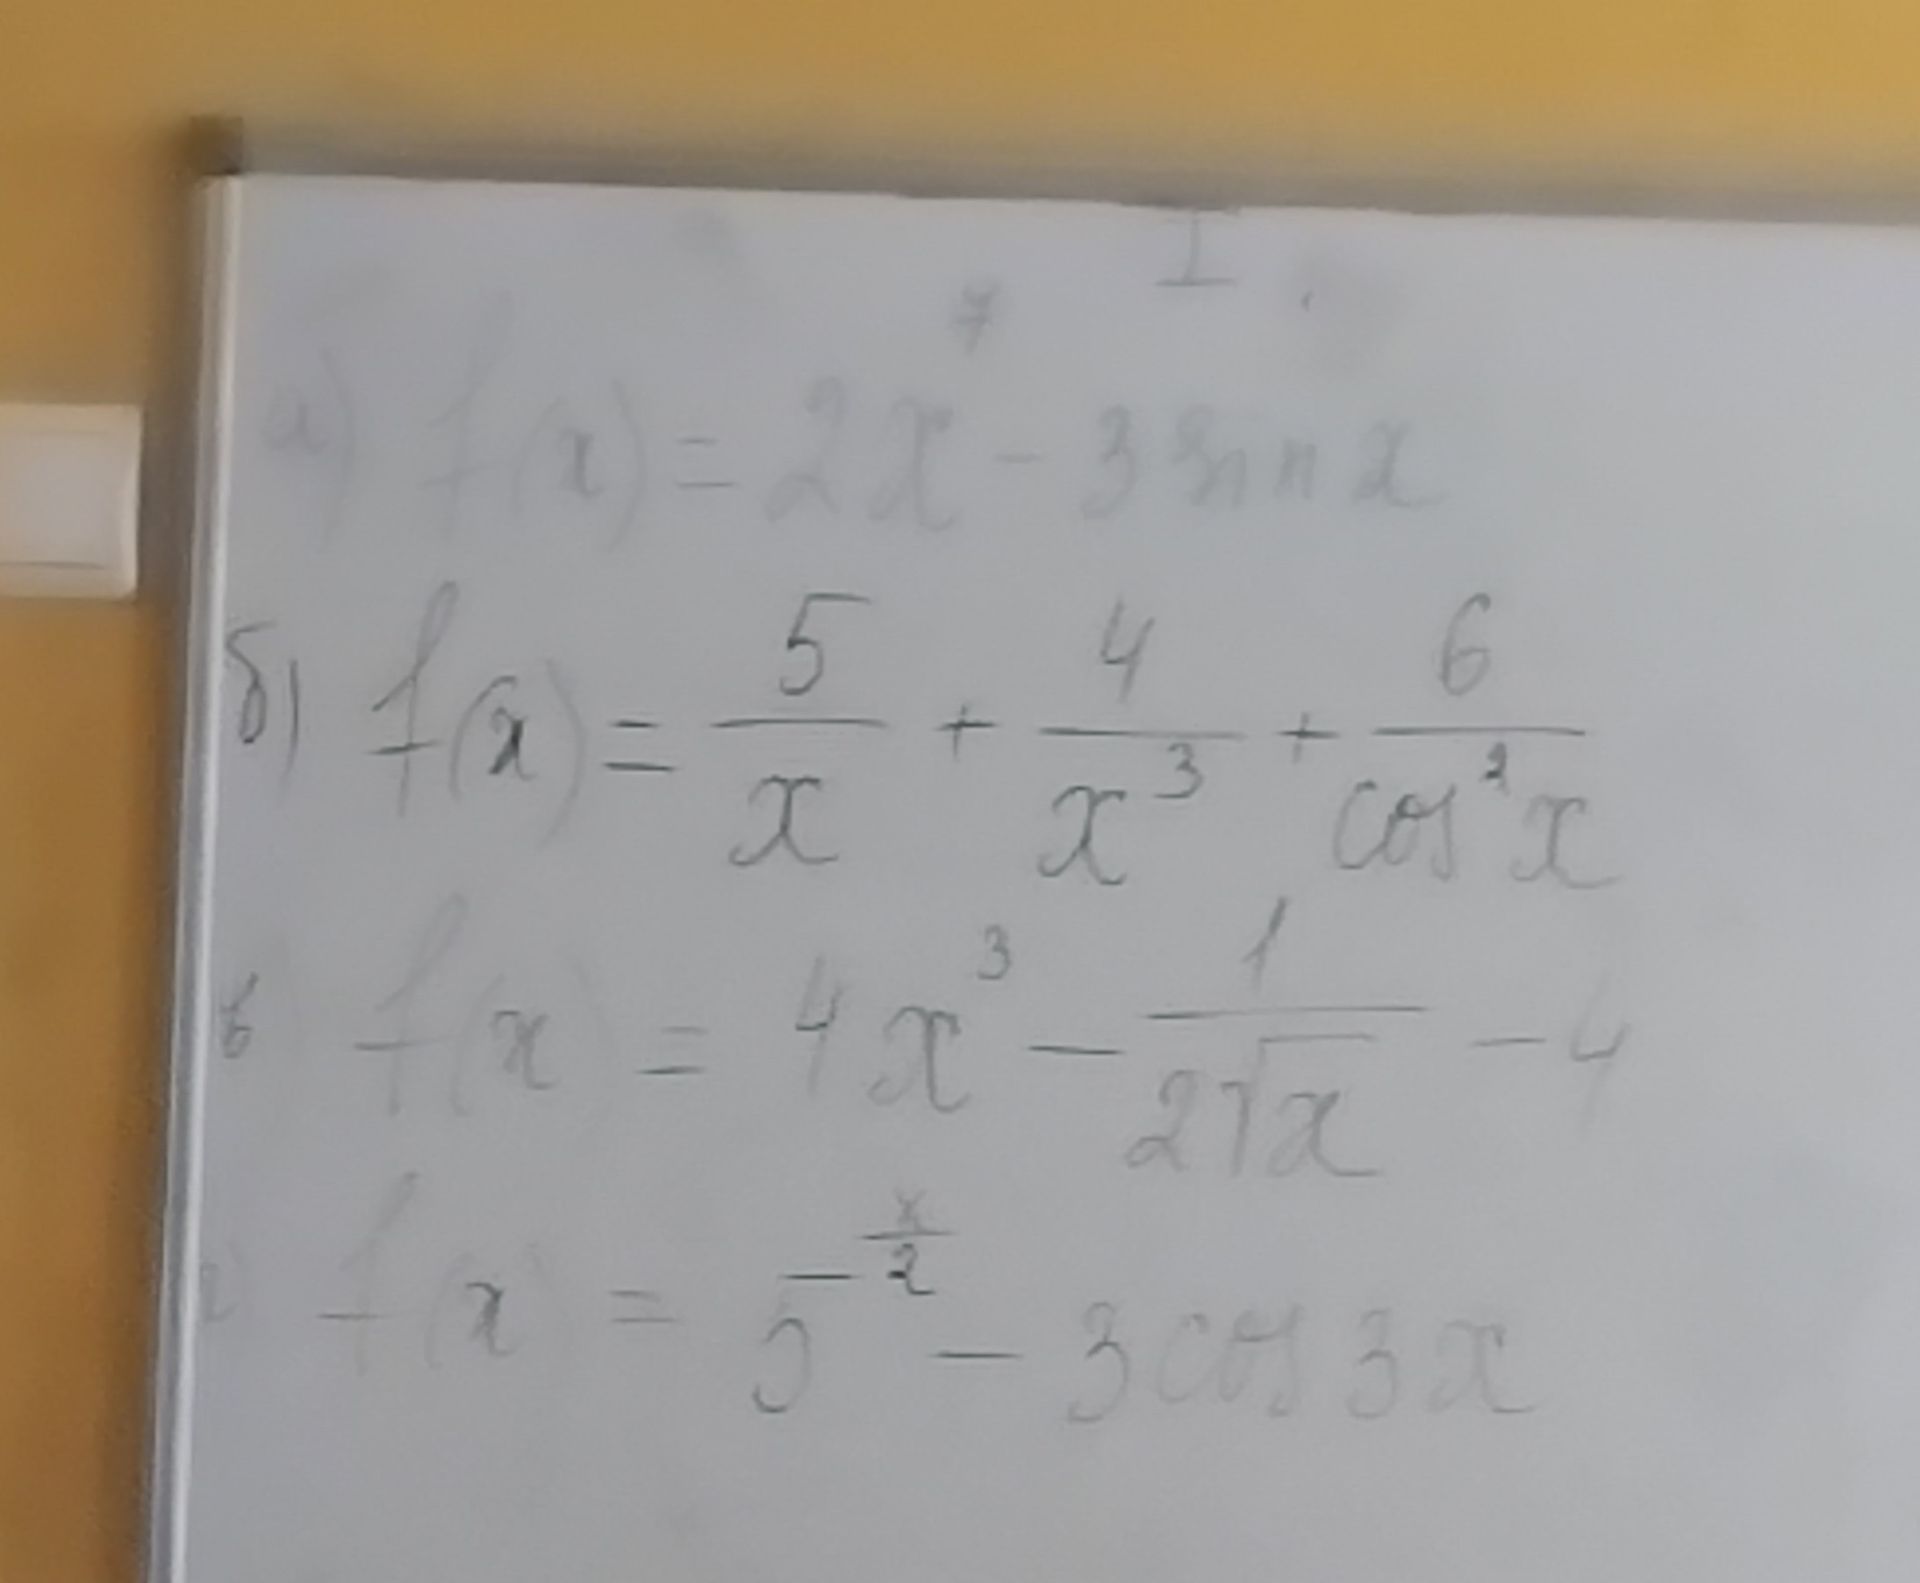 I
а) f(x) = 2x⁷ - 3 sin x
б) f(x) = 5/x + 4/x³ + 6/cos²x
в) f(x) = 4x³ - 1/(2√x) - 4
г) f(x) = 5^(-x/2) - 3 cos 3x